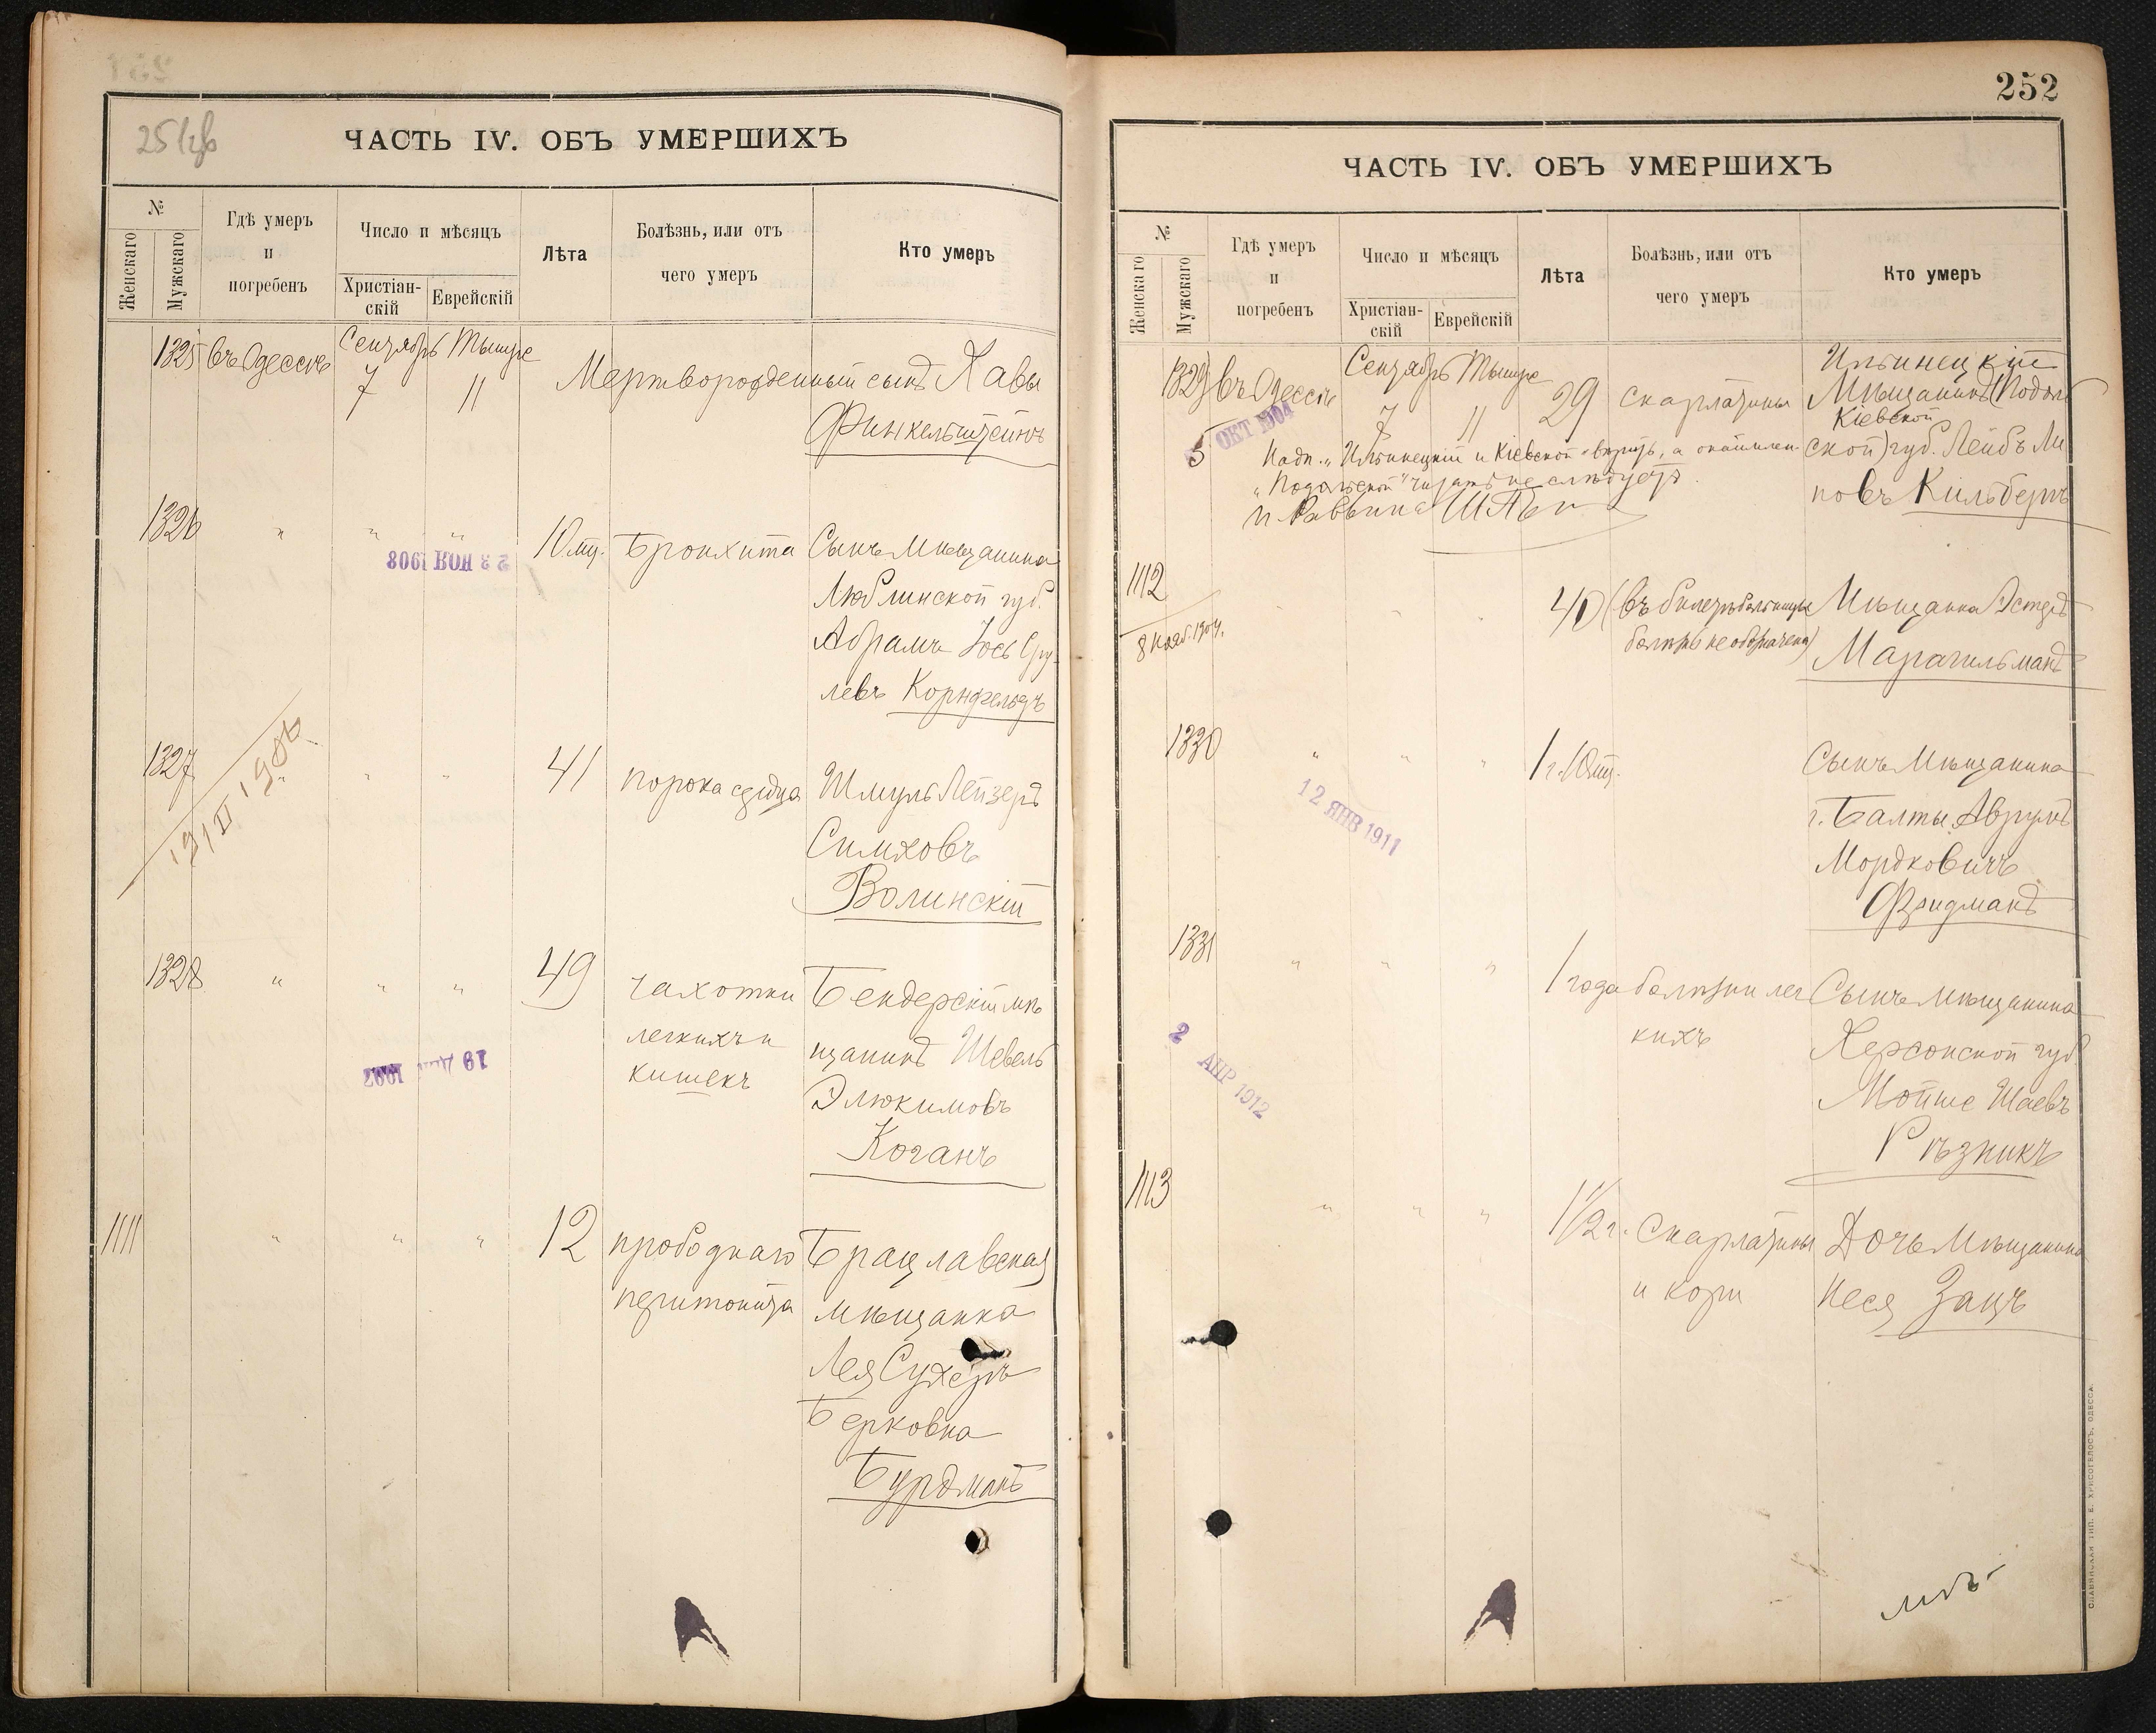 ЧАСТЬ IV. ОБЪ УМЕРШИХЪ
№
Женскаго
Мужскаго
Гдѣ умеръ
и
погребенъ
Число и мѣсяцъ
Христіан-
скій
Еврейскій
Лѣта
Болѣзнь, или отъ
чего умеръ
Кто умеръ
1325 въ Одессѣ Сентябрь Тышре
7 11
Мертворожденный сынъ Хавы
Финкельштейнъ
1326 " " " 10 мц. Бронхита Сынъ Мѣщанина
23 НОЯ 1908
Люблинской губ.
Абрамъ Іось Сру-
левъ Корнфельдъ
1327 " " " 41 порока сердца Шмуль Лейзеръ
Симховъ
Волинскій
1328 " " " 49 чахотки Бендерскій мѣ
легкихъ и щанинъ Шевель
кишекъ Элюкимовъ
Коганъ
19
1111 " " " 12 прободнаго Брацлавская
перитонита мѣщанка
Лея Сухеръ
Берковна
Бурдманъ
252
ЧАСТЬ IV. ОБЪ УМЕРШИХЪ
№
Женскаго
Мужскаго
Гдѣ умеръ
и
погребенъ
Число и мѣсяцъ
Христіан-
скій
Еврейскій
Лѣта
Болѣзнь, или отъ
чего умеръ
Кто умеръ
Ильинецкій
1329 въ Одессѣ Сентябрь Тышре 29 скарлатины Мѣщанинъ (Подоль
7 11
Кіевской
5 ОКТ 1904
ской) губ. Лейбъ Ли
Надп. „Ильинецкій и Кіевской" вѣрить, а
„Подольской" читать не слѣдуетъ.
повъ Кильберъ
Раввина
1112 40 (въ билетѣ больницы Мѣщанка Эстеръ
8 Нояб. 1904.
болѣзнь не обозначена)
Марагильманъ
1330 " " " 1 г. 10 мц. Сынъ Мѣщанина
12 ЯНВ 1911
г. Балты Аврумъ
Мордковичъ
Фридманъ
1331 " " " 1 года болѣзни лег Сынъ мѣщанина
кихъ Херсонской губ.
2 АПР 1912
Мойше Шаевъ
Рѣзникъ
1113 " " " 1 1/2 г. Скарлатины Дочь Мѣщанина
и кори Неся Зацъ
СЛАВЯНСКАЯ ТИП. Е. ХРИСОГЕЛОСЪ, ОДЕССА.